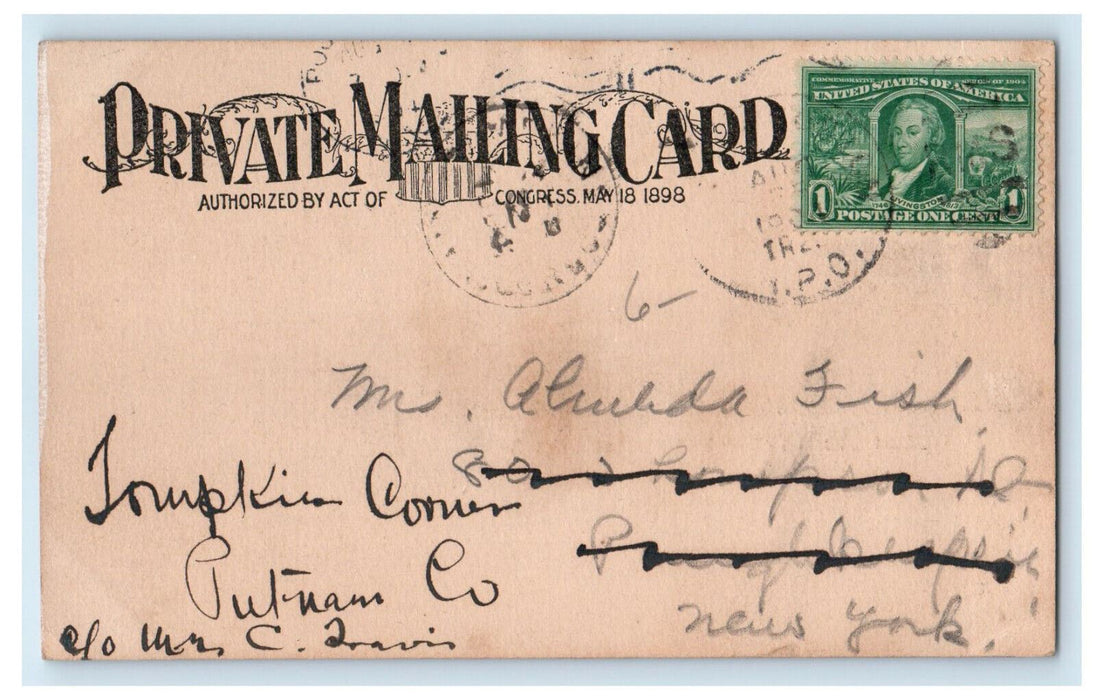 PRIVATE MAILING CARD
AUTHORIZED BY ACT OF CONGRESS. MAY 18 1898
COMMEMORATIVE SERIES OF 1904
UNITED STATES OF AMERICA
1743 LIVINGSTON 1813
1 POSTAGE ONE CENT 1
AU
TR
R.P.O.
6-
Mrs. Almeda Fish
Tompkins Corners
Poughkeepsie
Putnam Co
New York.
c/o Mrs C. Travis